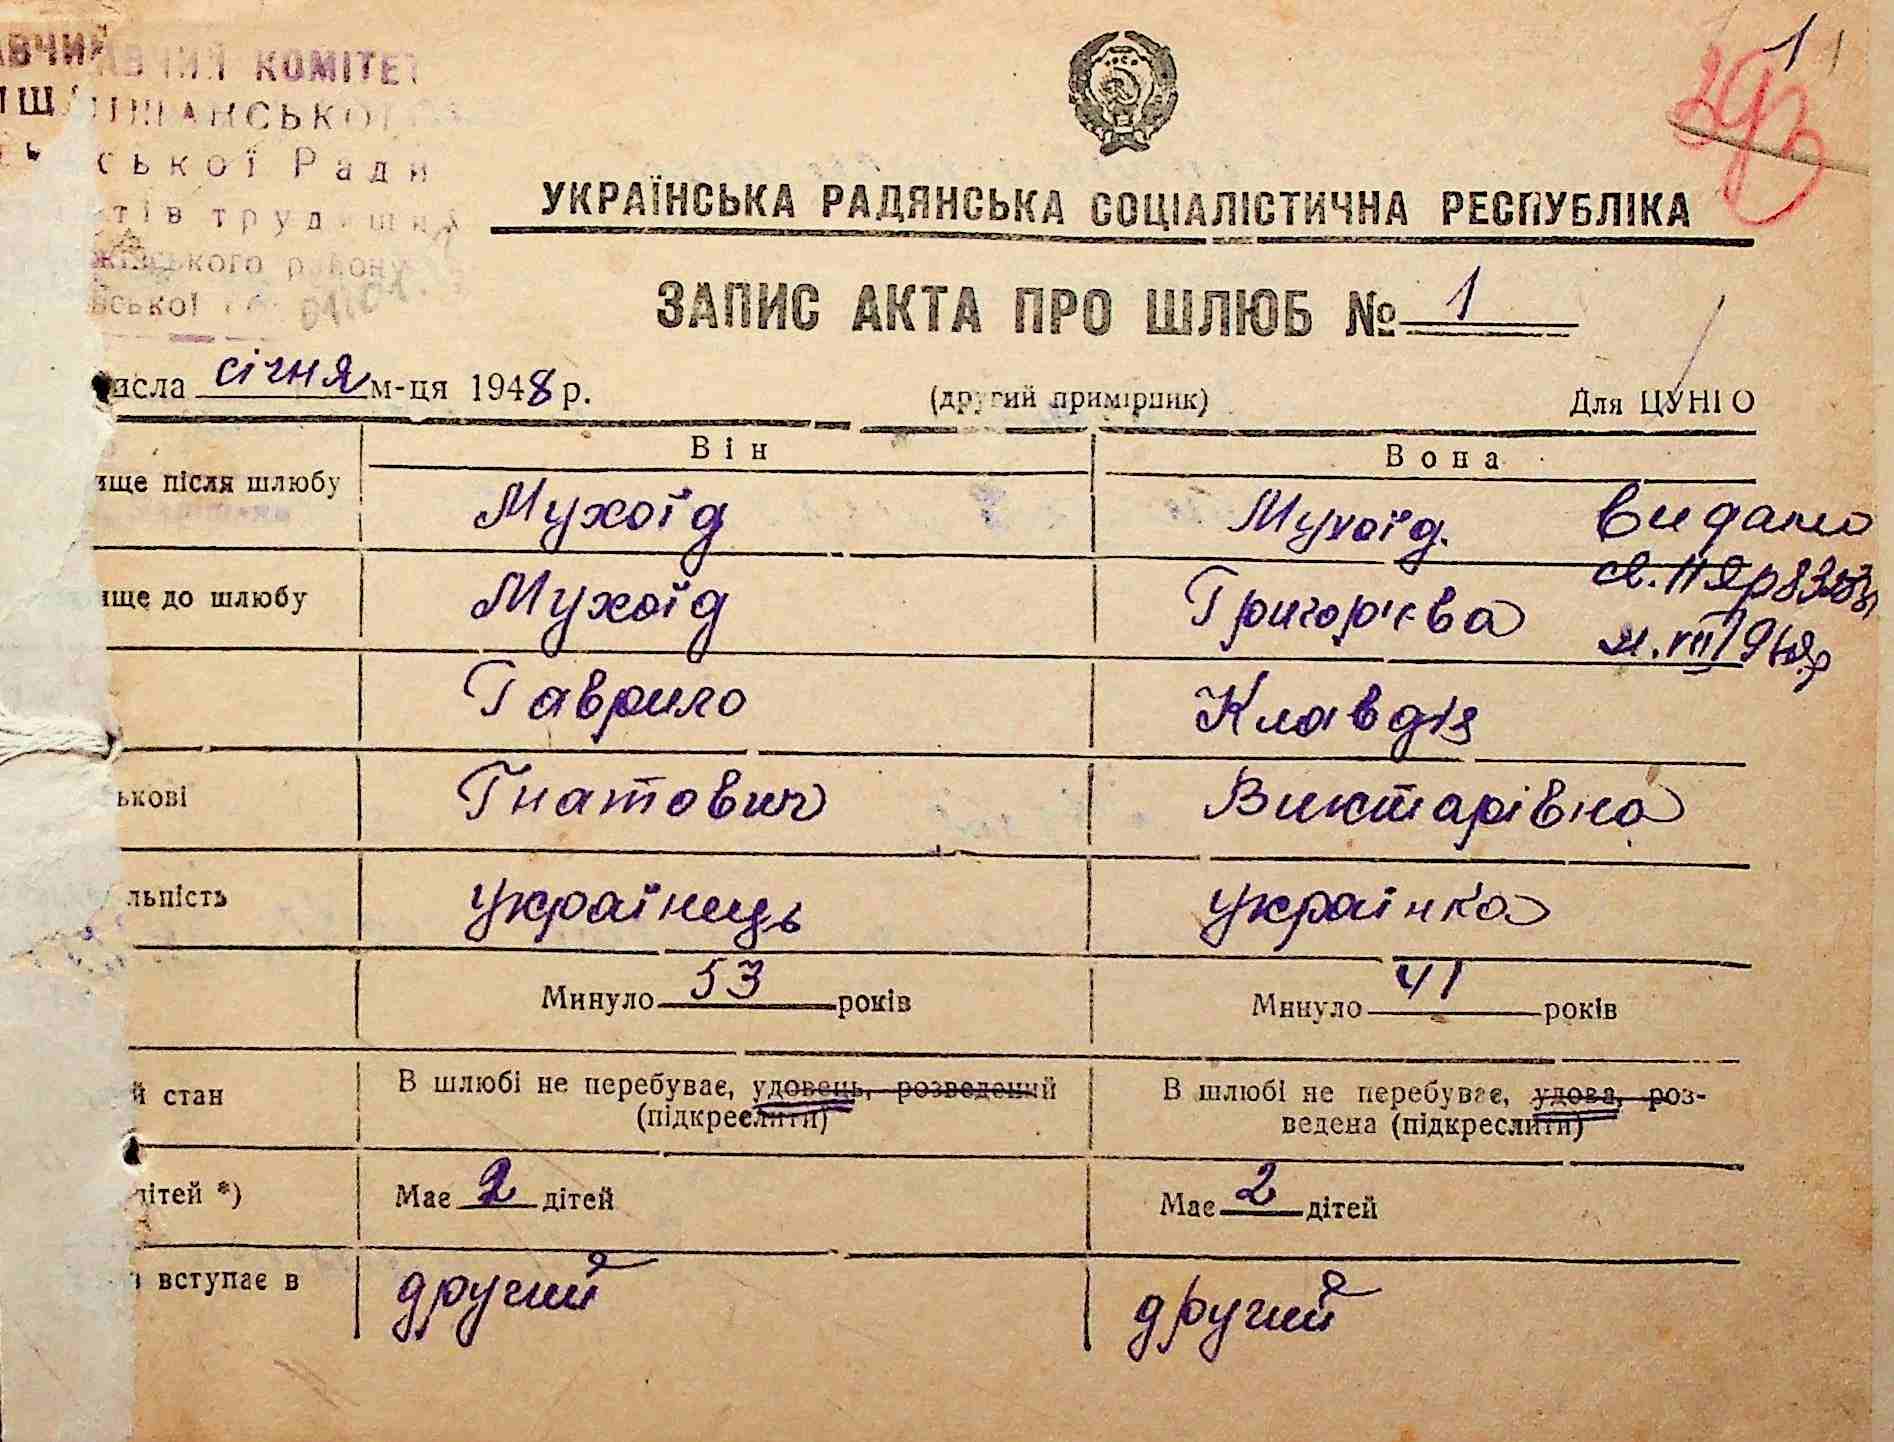 КОМІТЕТ
ської Ради
трудящих
ського району
УКРАЇНСЬКА РАДЯНСЬКА СОЦІАЛІСТИЧНА РЕСПУБЛІКА
ЗАПИС АКТА ПРО ШЛЮБ № 1
исла січня м-ця 1948 р. (другий примірник) Для ЦУНГО
Він Вона
ище після шлюбу Мухоїд Мухоїд. Видано
ище до шлюбу Мухоїд Григор'єва св. ІІ
Гаврило Клавдія
ькові Гнатович Виктарівна
льність українець українка
Минуло 53 років Минуло 41 років
й стан В шлюбі не перебуває, удовець, розведений (підкреслити) В шлюбі не перебуває, удова, роз-
ведена (підкреслити)
дітей *) Має 2 дітей Має 2 дітей
вступає в другий другий